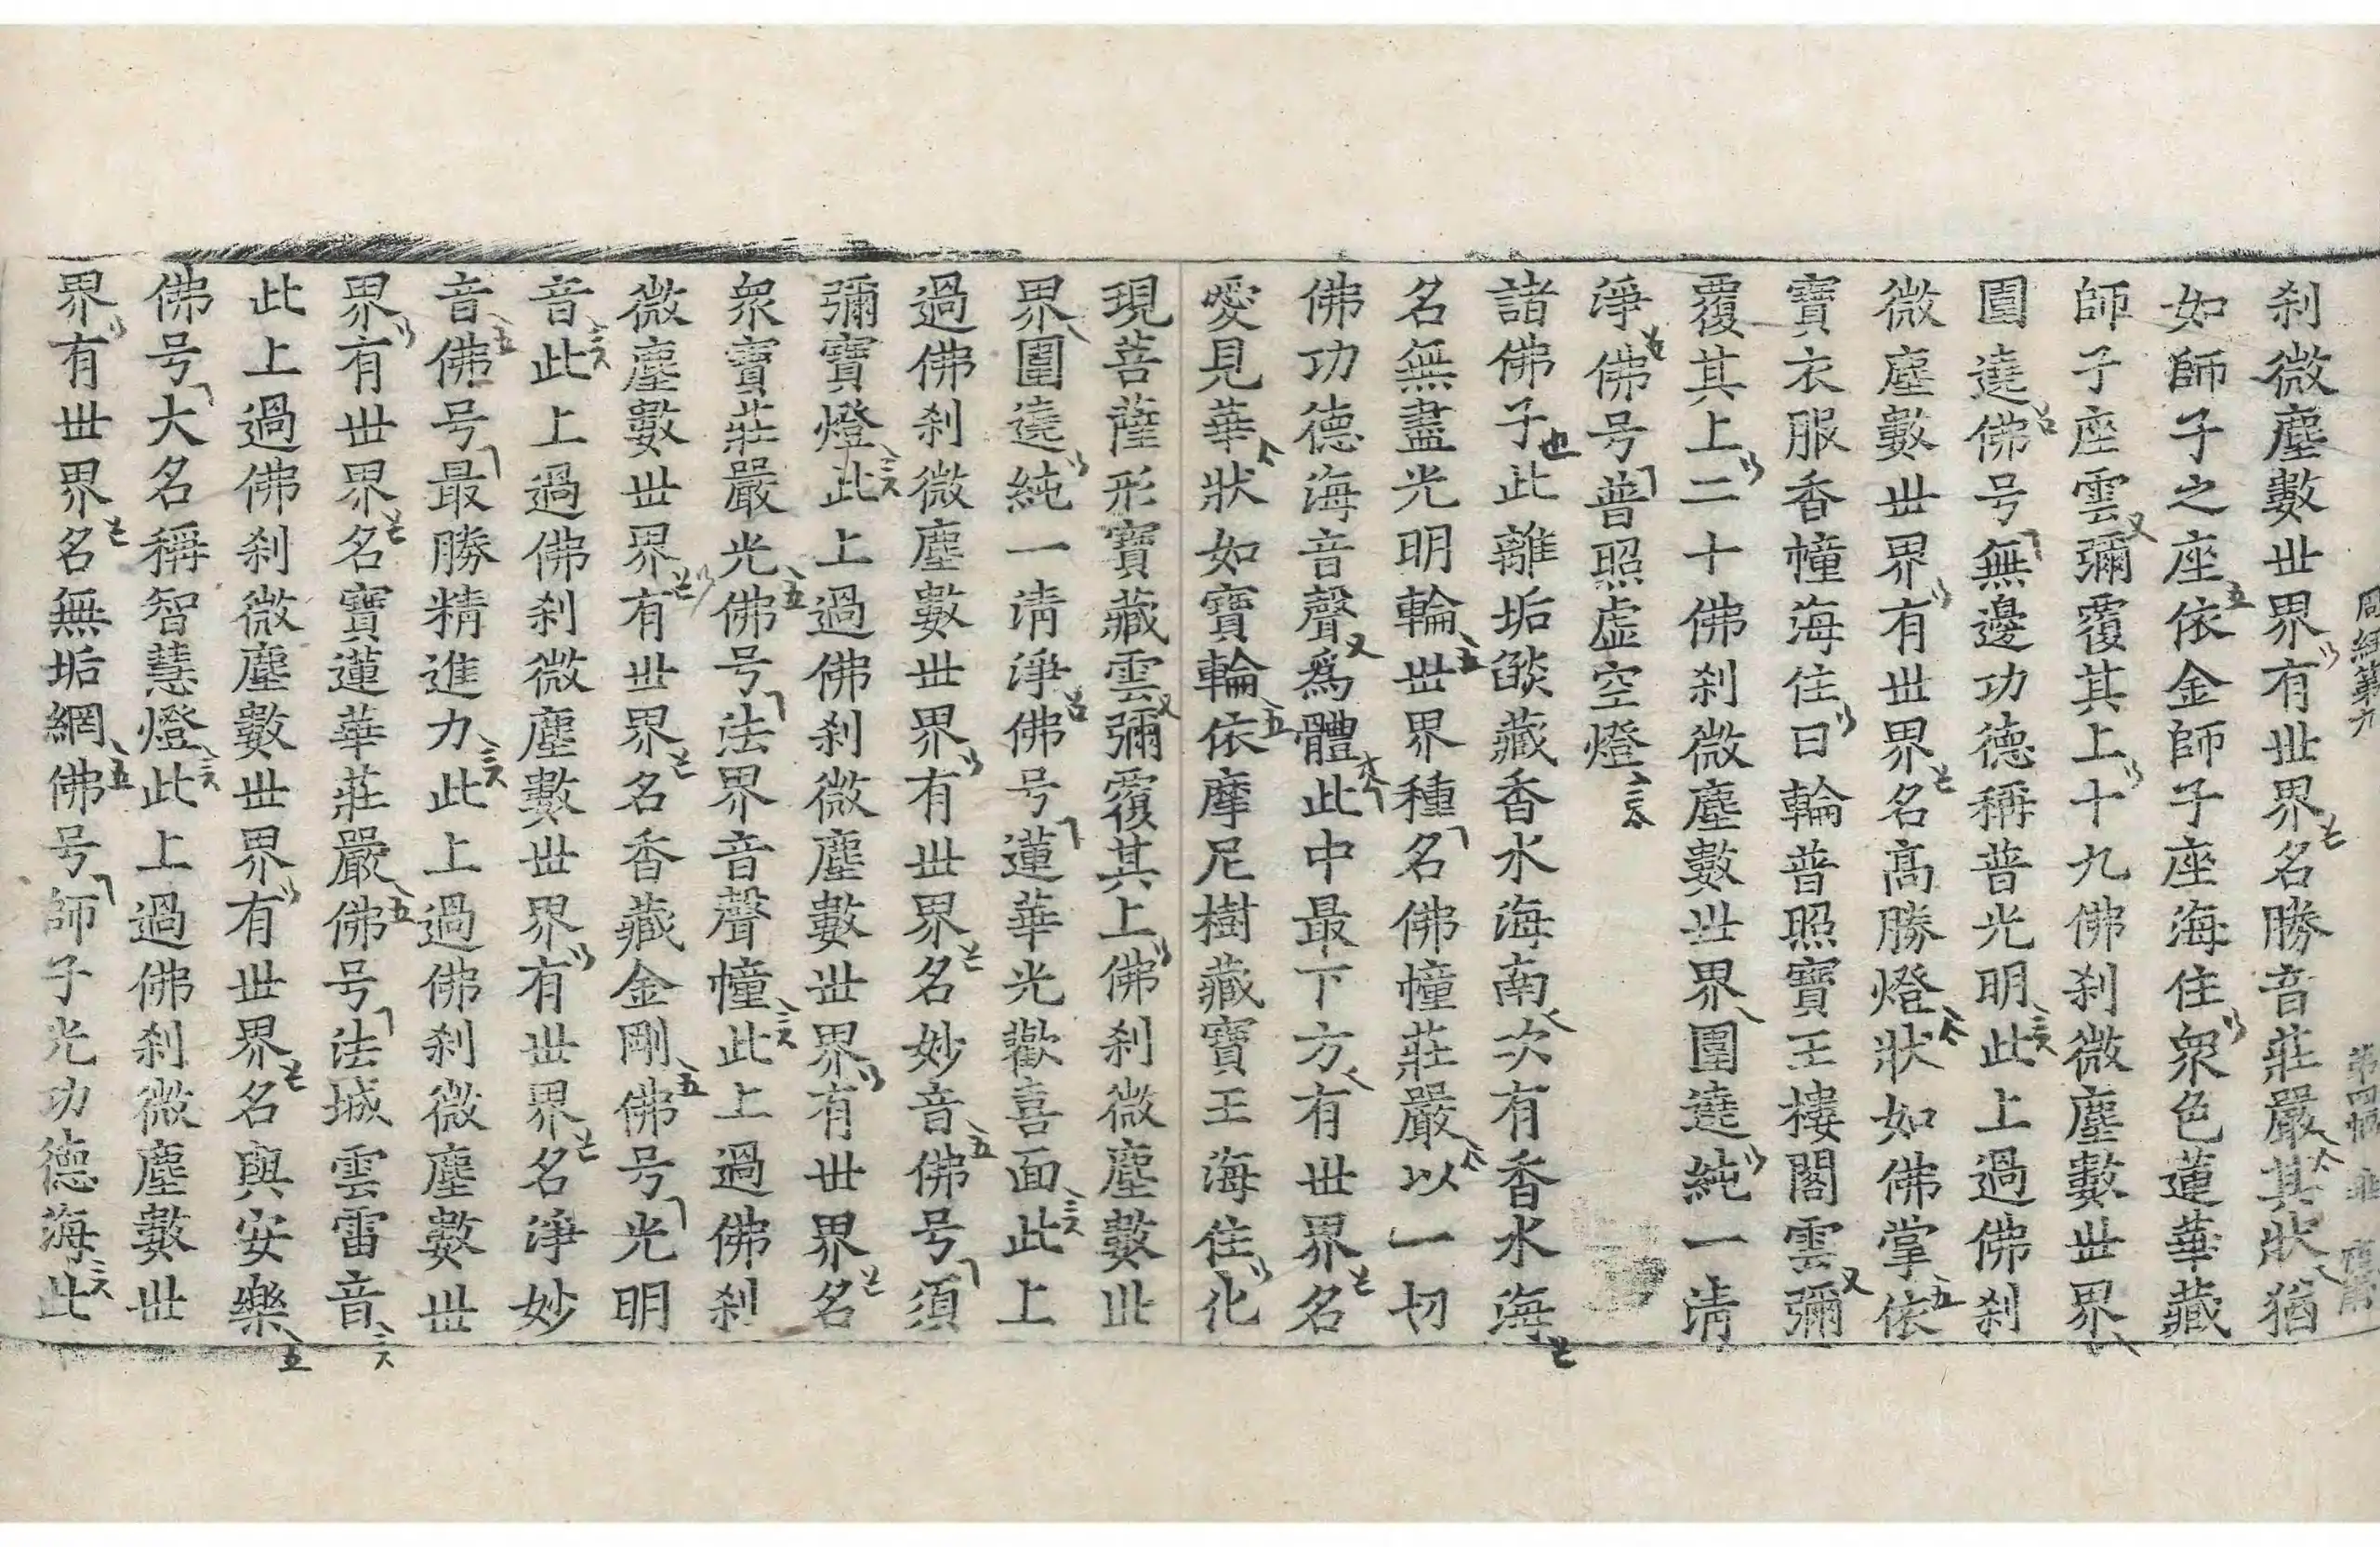 周経第九 第四悵
刹微塵數世界有世界名勝音莊嚴其狀猶
如師子之座依金師子座海住衆色蓮華藏
師子座雲彌覆其上十九佛刹微塵數世界
圍遶佛号無邊功德稱普光明此上過佛刹
微塵數世界有世界名高勝燈狀如佛掌依
寶衣服香幢海住日輪普照寶王樓閣雲彌
覆其上二十佛刹微塵數世界圍遶純一淸
淨佛号普照虛空燈
諸佛子此離垢燄藏香水海南次有香水海
名無盡光明輪世界種名佛幢莊嚴以一切
佛功德海音聲爲體此中最下方有世界名
愛見華狀如寶輪依摩尼樹藏寶王海住化
現菩薩形寶藏雲彌覆其上佛刹微塵數世
界圍遶純一淸淨佛号蓮華光歡喜面此上
過佛刹微塵數世界有世界名妙音佛号須
彌寶燈此上過佛刹微塵數世界有世界名
衆寶莊嚴光佛号法界音聲幢此上過佛刹
微塵數世界有世界名香藏金剛佛号光明
音此上過佛刹微塵數世界有世界名淨妙
音佛号最勝精進力此上過佛刹微塵數世
界有世界名寶蓮華莊嚴佛号法城雲雷音
此上過佛刹微塵數世界有世界名與安樂
佛号大名稱智慧燈此上過佛刹微塵數世
界有世界名無垢網佛号師子光功德海此